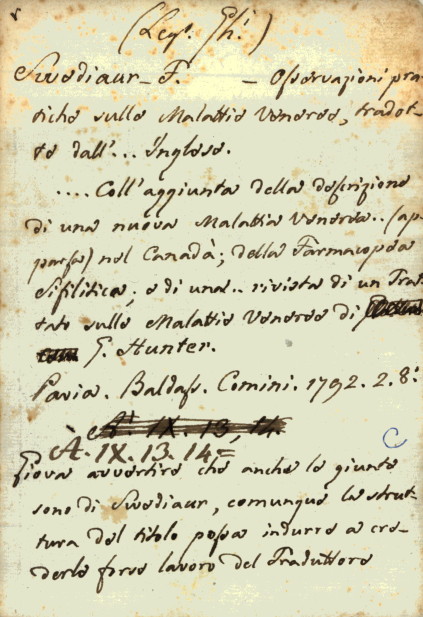 (Leg.ⁱ Ph.ⁱ)
Swediaur_ F. _ Osservazioni pra-
tiche sulle Malattie Veneree, tradot-
te dall'... Inglese.
.... Coll'aggiunta della descrizione
di una nuova Malattia Venerea.. (ap-
parsa) nel Canadà; della Farmacopea
Sifilitica; e di una.. rivista di un Trat-
tato sulle Malattie Veneree di
G. Hunter.
Pavia. Baldass. Comini. 1792. 2. 8.º
A. IX. 13, 14.
A. IX. 13. 14=
Giova avvertire che anche le giunte
sono di Swediaur, comunque la strut-
tura del titolo possa indurre a cre-
derle forse lavoro del Traduttore